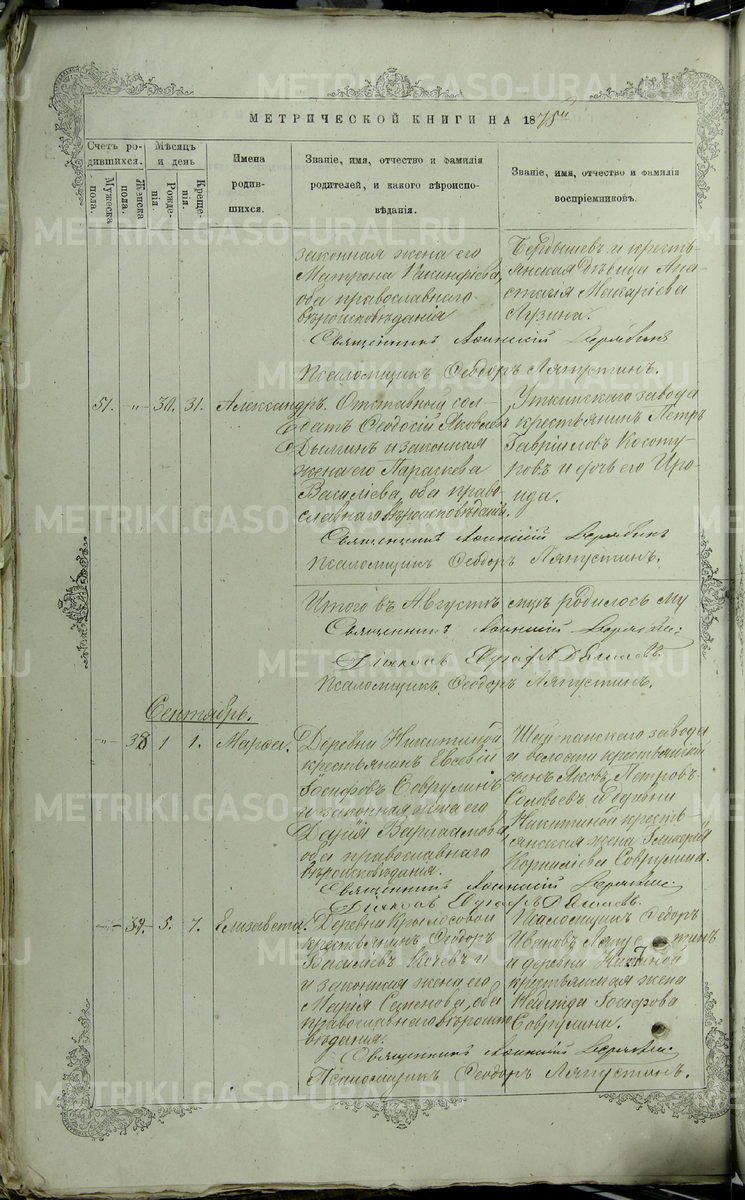 МЕТРИЧЕСКОЙ КНИГИ НА 1875 г.
Счетъ ро-
дившихся.
Мужеска
пола.
Женска
пола.
Мѣсяцъ
и день
Рожде-
нія.
Креще-
нія.
Имена
родив-
шихся.
Званіе, имя, отчество и фамилія
родителей, и какого вѣроиспо-
вѣданія.
Званіе, имя, отчество и фамилія
воспріемниковъ.
законная жена его
Матрона
оба православнаго
вѣроисповѣданія
Бердышевъ и кресть-
янская дѣвица Ана-
стасія Макаріева
Лузина.
Священникъ
Псаломщикъ Ѳеодоръ Ляпустинъ.
51. -„- 30. 31. Александръ.
Отставный сол-
датъ Ѳеодосій Яковлевъ
и законная
жена его Параскева
Василіева, оба право-
славнаго вѣроисповѣданія.
Уткинскаго завода
крестьянинъ Петръ
Гавріиловъ Косоту-
ровъ и дочь его Иро-
ида.
Священникъ
Псаломщикъ Ѳеодоръ Ляпустинъ.
Итого въ Августѣ мцѣ родилось му
Священникъ
Псаломщикъ Ѳеодоръ Ляпустинъ.
Сентябрь.
-„- 38 1 1. Марѳа.
Деревни Никитиной
крестьянинъ Евсевій
Іосифовъ Соврулинъ
и законная жена его
Дарія Варлаамова,
оба православнаго
вѣроисповѣданія.
Шайтанскаго завода
и волости крестьянскій
сынъ Яковъ Петровъ
Соловьевъ и деревни
Никитиной кресть-
янская жена Гликерія
Корниліева Соврулина.
Священникъ
-„- 39. 5. 7. Елизавета.
Деревни Крылосовой
крестьянинъ Ѳеодоръ
Васильевъ
и законная жена его
Марія Семенова, оба
православнаго вѣроиспо-
вѣданія.
Псаломщикъ Ѳеодоръ
Ивановъ Ляпустинъ
и деревни Никитиной
крестьянская жена
Надежда Іосифова
Соврулина.
Священникъ
Псаломщикъ Ѳеодоръ Ляпустинъ.
METRIKI.GASO-URAL.RU